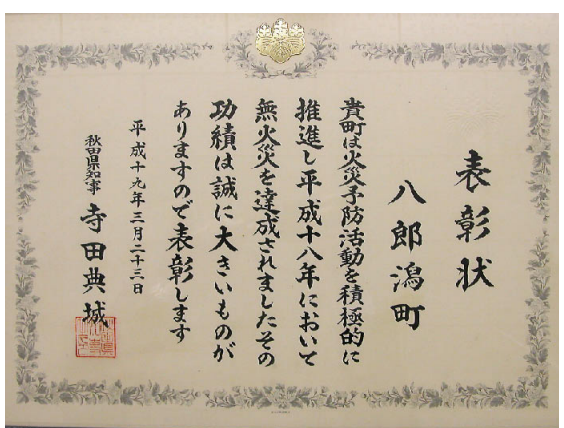 表彰状
八郎潟町
貴町は火災予防活動を積極的に
推進し平成十八年において
無火災を達成されましたその
功績は誠に大きいものが
ありますので表彰します
平成十九年三月二十三日
秋田県知事 寺田典城